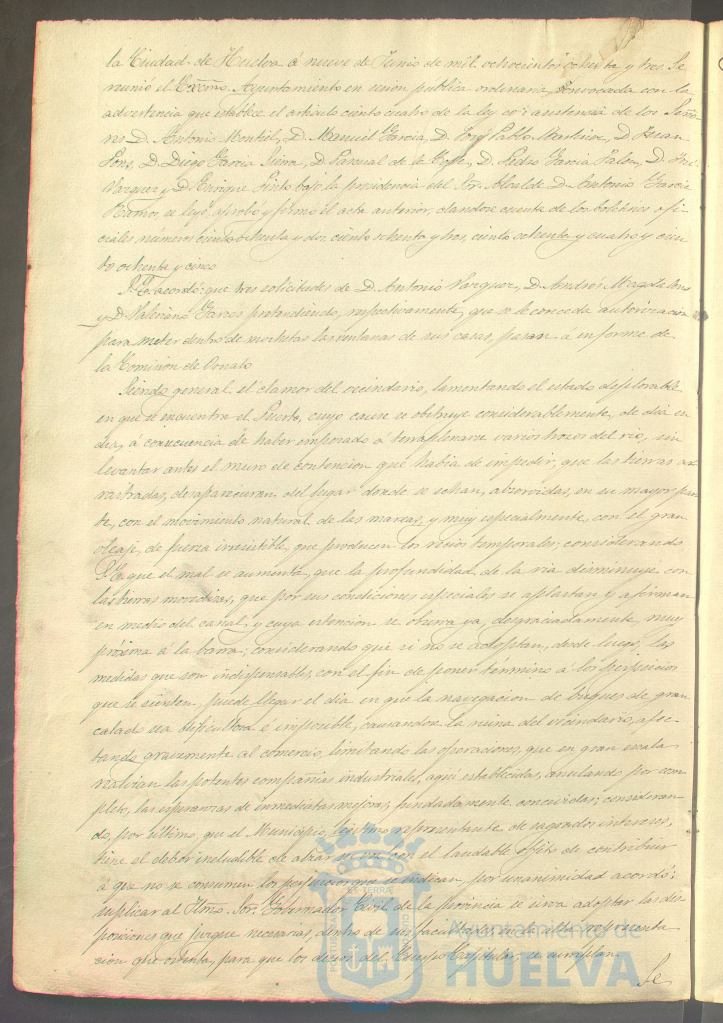 la Ciudad de Huelva á nueve de Junio de mil ochocientos ochenta y tres. Se
reunió el Excmo. Ayuntamiento en sesion publica ordinaria, convocada con la
advertencia que establece el artículo ciento cuatro de la ley con asistencia de los Seño-
res D. Antonio Montiel, D. Manuel Garcia, D. José Pablo Martinez, D. Juan
Pons, D. Diego Garcia, D. Pascual de la D. Pedro Garcia D. José
Vazquez y D. Enrique Pinto bajo la presidencia del Sr. Alcalde D. Antonio Garcia
Ramos se leyó, aprobó y firmó el acta anterior, dandose cuenta de los boletines ofi-
ciales, números ciento ochenta y dos, ciento ochenta y tres, ciento ochenta y cuatro y cien-
to ochenta y cinco
S. E. acordó: que tres solicitudes de D. Antonio Vazquez, D. Andrés Magdaleno
y D. Valeriano Garcés pretendiendo, respectivamente, que se le conceda autorizacion
para meter dentro de mochetas las ventanas de sus casas, pasen á informe de
la Comision de Ornato
Siendo general el clamor del vecindario, lamentando el estado deplorable
en que se encuentra el Puerto, cuyo cauce se obstruye considerablemente, de dia en
dia, á consecuencia de haber empezado á terraplenarse varios trozos del rio, sin
levantar antes el muro de contencion que habia de impedir, que las tierras ar-
rastradas, desaparecieran del lugar donde se echan, absorvidas, en su mayor par-
te, con el movimiento natural de las mareas, y muy especialmente, con el gran
oleaje, de fuerza irresistible, que producen los recios temporales; considerando
S. E. que el mal se aumenta, que la profundidad de la ria disminuye con
las tierras movedizas, que por sus condiciones especiales se aplastan y afirman
en medio del canal, y cuya estencion se observa ya, desgraciadamente, muy
próxima á la barra; considerando que si no se adoptan, desde luego, las
medidas que son indispensables, con el fin de poner término á los perjuicios
que se sienten, puede llegar el dia en que la navegacion de buques de gran
calado sea dificultosa é imposible, causandose la ruina del vecindario, afec-
tando gravemente al comercio, limitando las operaciones, que en gran escala
realizan las potentes compañias industriales, aqui establecidas, anulando por com-
pleto, las esperanzas de inmediatas mejoras, fundadamente concevidas; consideran-
do, por último, que el Municipio, legitimo representante de sagrados intereses,
tiene el deber ineludible de alzar su voz con el laudable objeto de contribuir
á que no se consumen los perjuicios que se indican, por unanimidad acordó:
suplicar al Iltmo. Sor. Gobernador Civil de la provincia se sirva adoptar las dis-
posiciones que juzgue necesarias, dentro de sus facultades y de la alta representa-
cion que ostenta, para que los deseos del Cuerpo Capitular, se cumplan.
Se
Ayuntamiento de
HUELVA